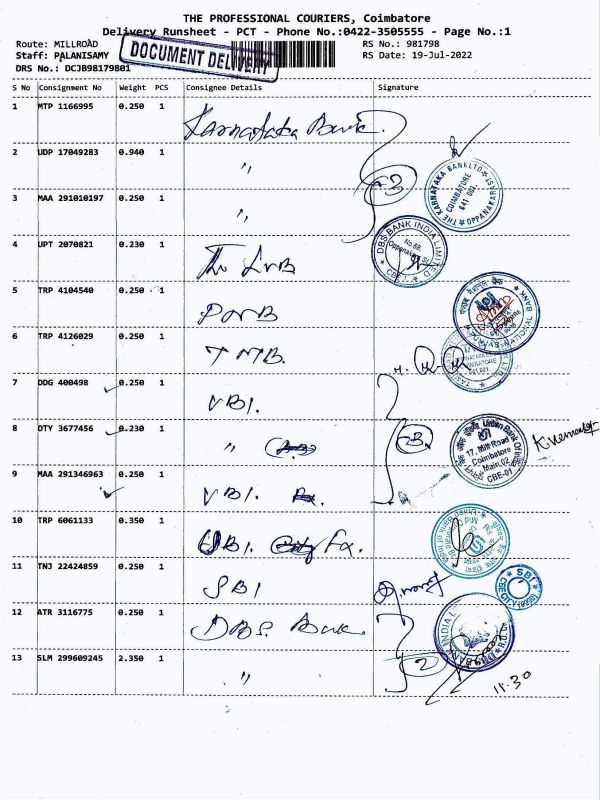 THE PROFESSIONAL COURIERS, Coimbatore
Delivery Runsheet - PCT - Phone No.:0422-3505555 - Page No.:1
Route: MILLROAD
RS No.: 981798
Staff: PALANISAMY
RS Date: 19-Jul-2022
DOCUMENT DELIVERY
DRS No.: DCJB98179801
S No Consignment No Weight PCS Consignee Details Signature
1 MTP 1166995 0.250 1 Karnataka Bank.
2 UDP 17049283 0.940 1 "
3
THE KARNATAKA BANK LTD COIMBATORE 641 001.
3 MAA 291010197 0.250 1 "
DBS BANK INDIA LIMITED No.68, Oppanakara St. CBE-1
4 UPT 2070821 0.230 1 The LVB
5 TRP 4104540 0.250 1 PNB
PUNJAB NATIONAL BANK
6 TRP 4126029 0.250 1 TMB.
7 DDG 400498 0.250 1 VBI.
8 DTY 3677456 0.230 1 "
3
Union Bank 17, Mill Road Coimbatore Main.02 CBE-01
9 MAA 291346963 0.250 1 VBI.
10 TRP 6061133 0.350 1 UBI.
11 TNJ 22424859 0.250 1 SBI
SBI
12 ATR 3116775 0.250 1 DBS. Bank
13 SLM 299609245 2.350 1 "
2
11.30